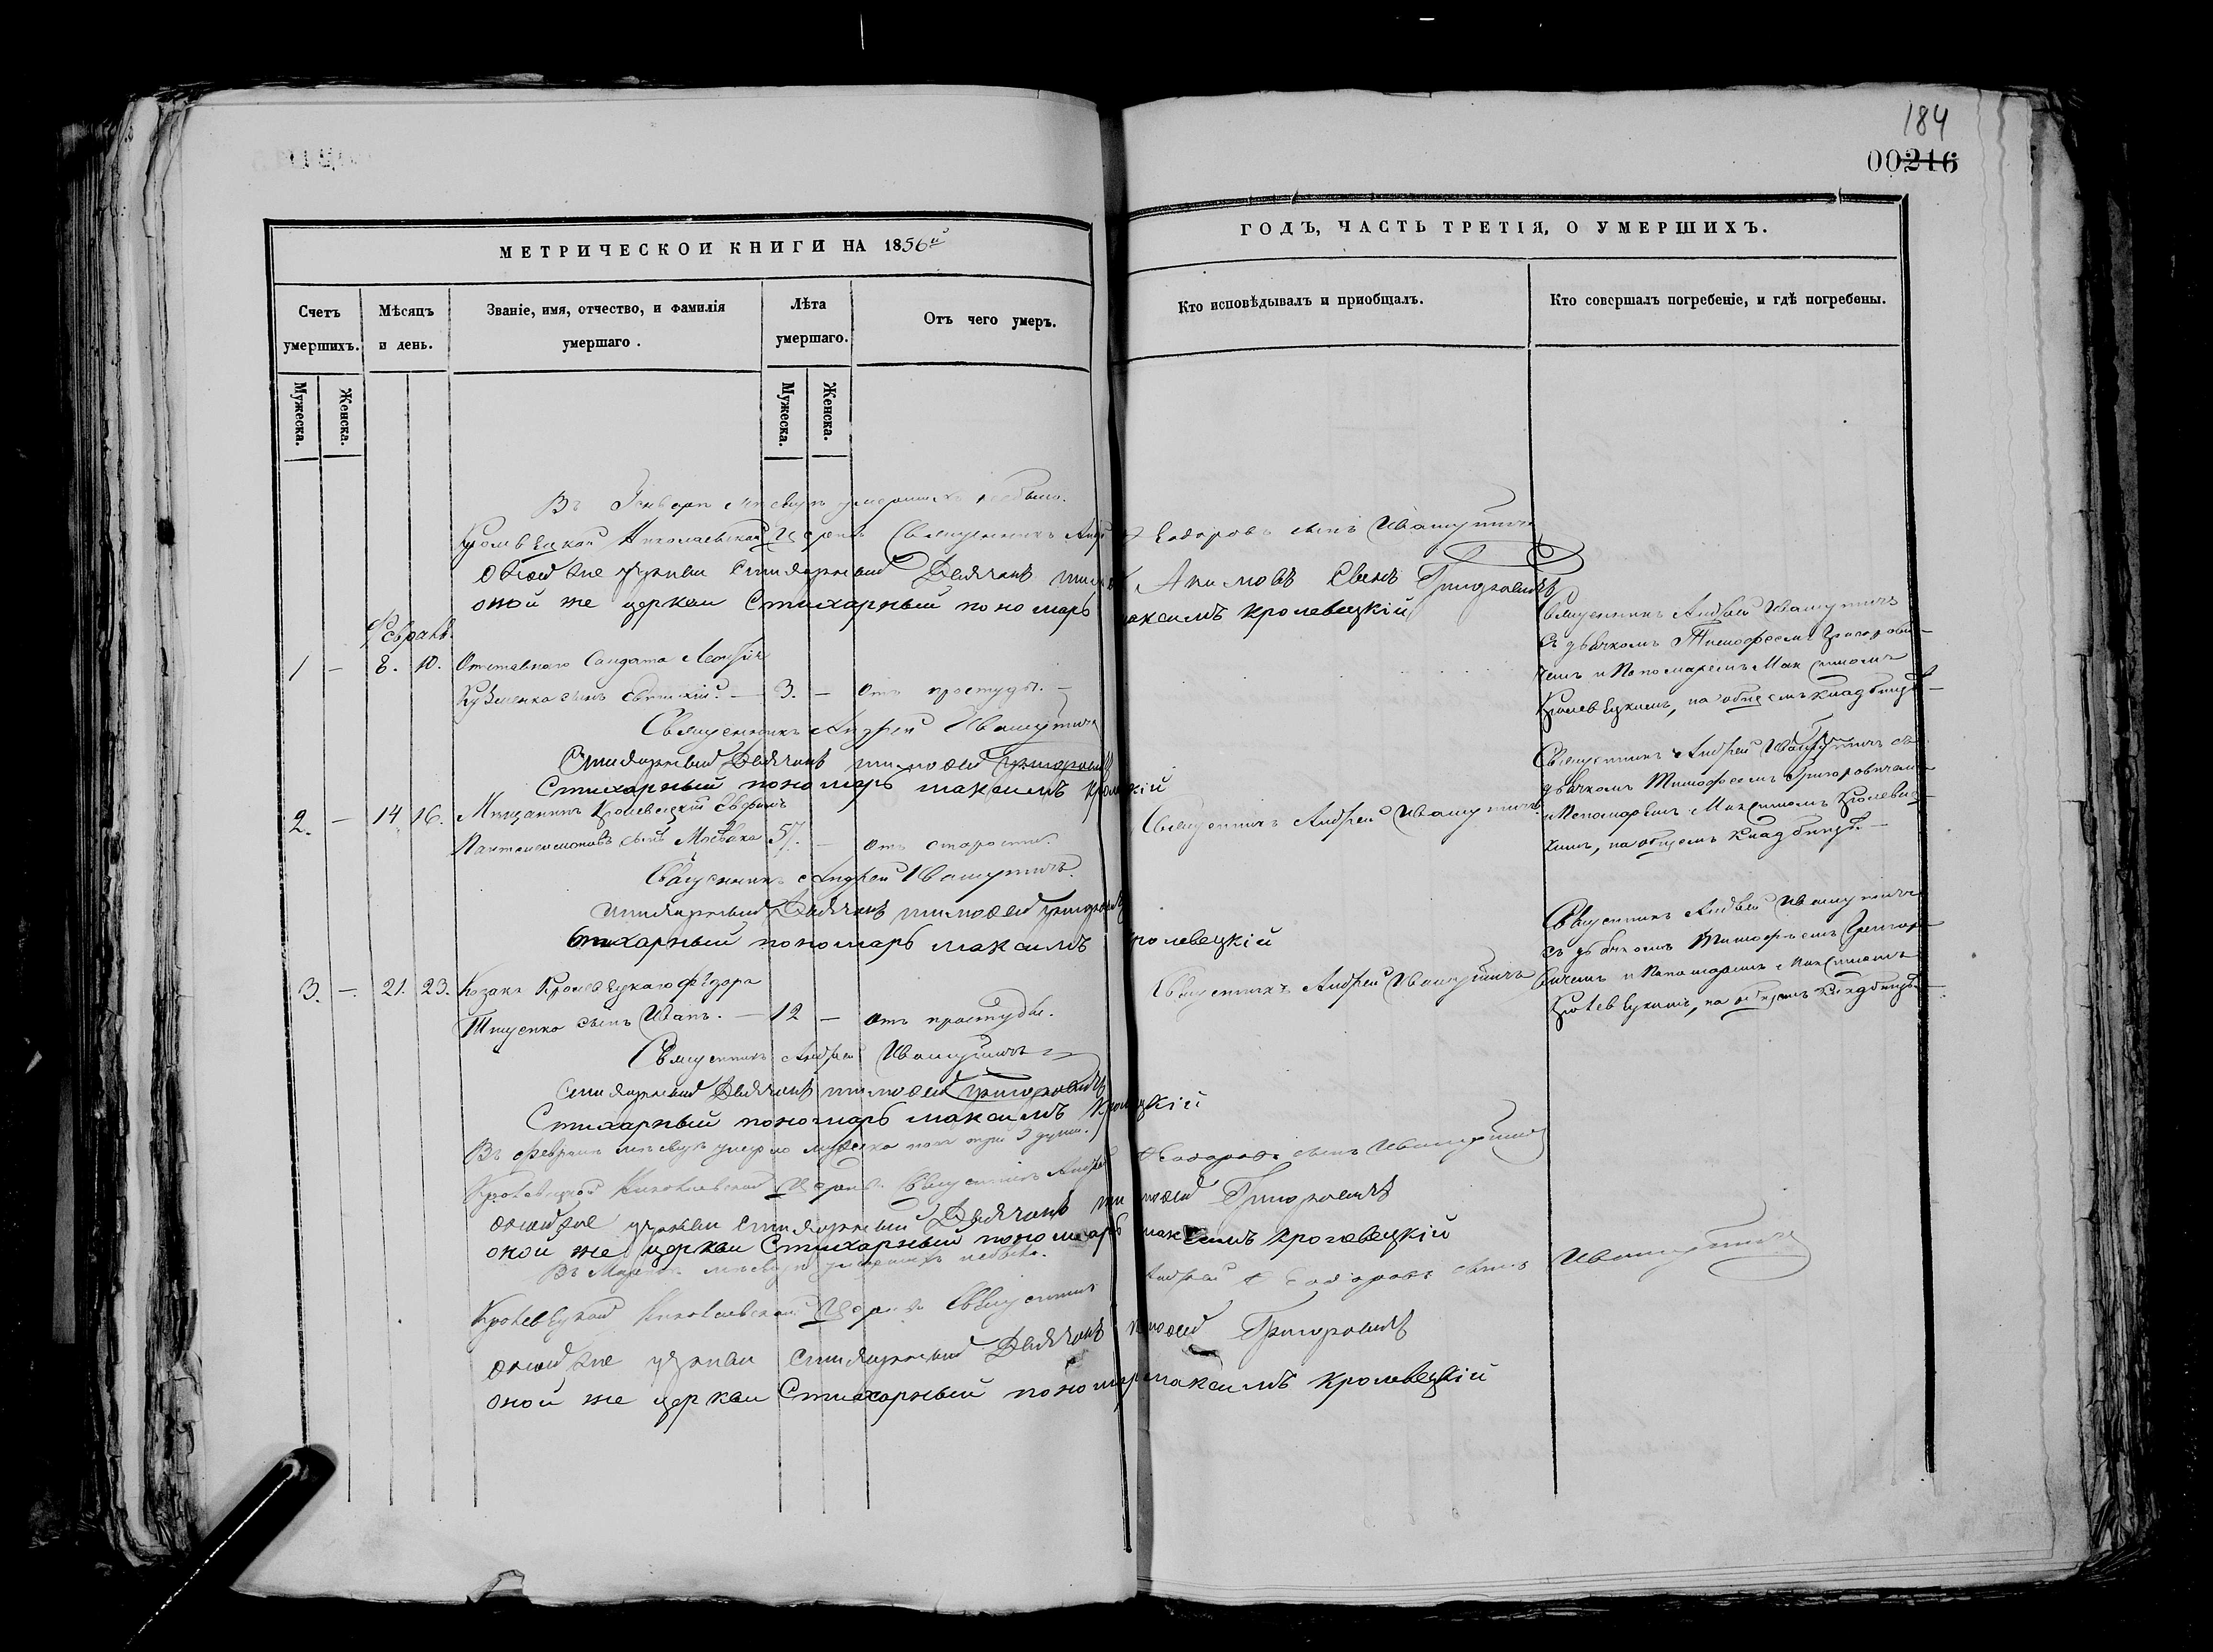 184
00216
МЕТРИЧЕСКОИ КНИГИ НА 1856й
ГОДЪ, ЧАСТЬ ТРЕТІЯ, О УМЕРШИХЪ.
Счетъ умершихъ.
Мѣсяцъ и день.
Званіе, имя, отчество, и фамилія умершаго.
Лѣта умершаго.
Отъ чего умеръ.
Кто исповѣдывалъ и приобщалъ.
Кто совершалъ погребеніе, и гдѣ погребены.
Мужеска.
Женска.
Мужеска.
Женска.
Въ Генваре месяце умершихъ небыло.
Кролевецкой Николаевской Церкви Священникъ Андрей Феодоровъ сынъ Ивашутичъ
оной же церкви стихарный Дьячокъ Акимовъ Сынъ Григоровичъ
оной же церкви Стихарный пономарь максимъ кролевецкій
Февраль.
1 — 8. 10. Отставнаго Солдата
сынъ — 3. — Отъ простуды. —
Священникъ Андрей Ивашутичъ
съ дьячкомъ Тимофеемъ Григорови-
чемъ и Пономаремъ Максимомъ
Кролевецкимъ, на общемъ кладбищѣ —
Священникъ Андрей Ивашутичъ
Стихарный Дьячокъ тимофей григоровичъ
Стихарный пономарь максимъ кролевецкій
2. — 14. 16. Мещанинъ Кролевецкій
Пантелеимоновъ сынъ 57. — отъ старости.
Священникъ Андрей Ивашутичъ
Священникъ Андрей Ивашутичъ съ
дьячкомъ Тимофеемъ Григоровичемъ
и Пономаремъ Максимомъ Кролевец-
кимъ, на общемъ кладбищѣ. —
Священникъ Андрей Ивашутичъ
стихарный Дьячокъ тимофей григоровичъ
Стихарный пономарь максимъ кролевецкій
3. — 21. 23. Козака Кролевецкаго Фѣдора
Тищенко сынъ Иванъ. — 12 — отъ простуды.
Священникъ Андрей Ивашутичъ
Священникъ Андрей Ивашутичъ
съ дьячкомъ Тимофеемъ Григоро-
вичемъ и Пономаремъ Максимомъ
Кролевецкимъ, на общемъ кладбищѣ. —
Священникъ Андрей Ивашутичъ
стихарный Дьячокъ тимофей григоровичъ
Стихарный пономарь максимъ кролевецкій
Въ феврале месяце умерло мужеска пола три 3 души.
Кролевецкой Николаевской Церкви Священникъ Андрей Феодоровъ сынъ Ивашутичъ
оной же церкви стихарный Дьячокъ тимофей Григоровичъ
оной же церкви Стихарный пономарь максимъ кролевецкій
Въ Марте месяце умершихъ небыло.
Кролевецкой Николаевской Церкви Священникъ Андрей Феодоровъ сынъ Ивашутичъ
оной же церкви стихарный Дьячокъ тимофей Григоровичъ
оной же церкви Стихарный пономарь максимъ кролевецкій